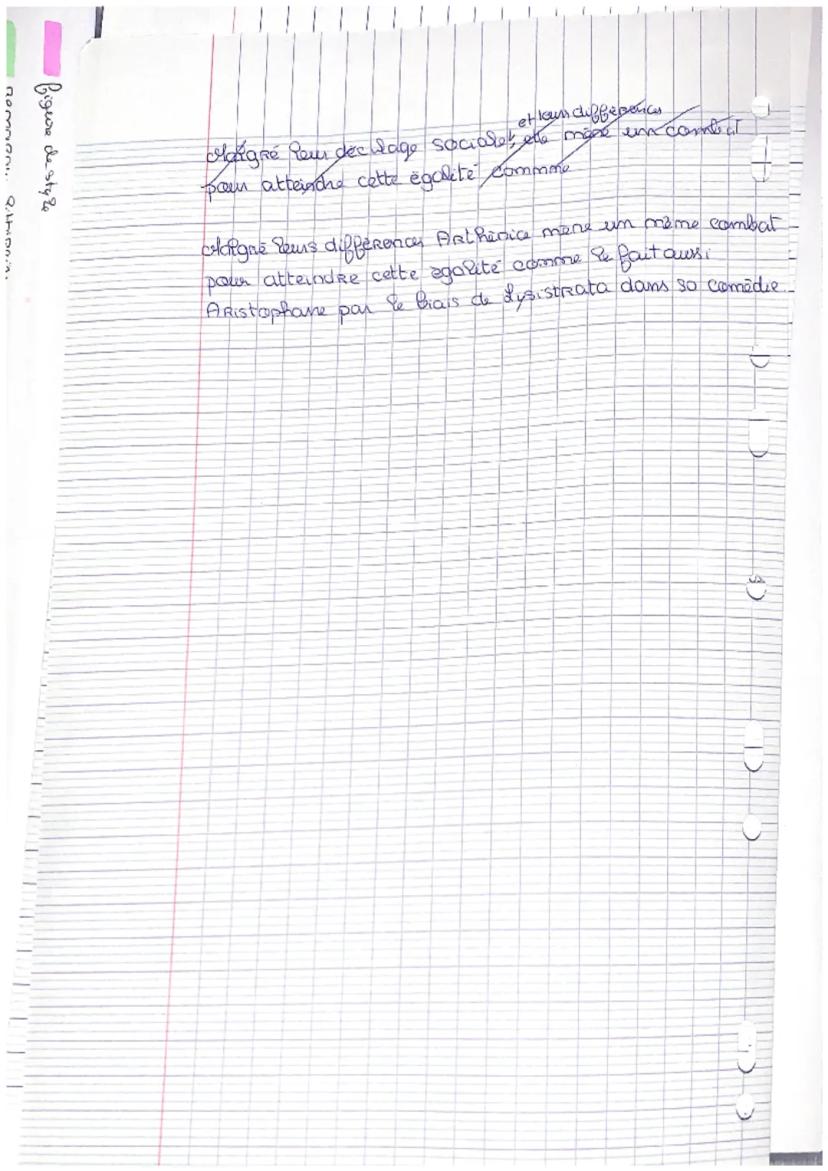 et leurs différences
Malgré leur décalage sociale, elle mène un combat
pour atteindre cette égalité commme
Malgré leurs différences Arthénice mène un même combat
pour atteindre cette égalité comme le fait aussi
Aristophane par le biais de Lysistrata dans sa comédie.
figure de style